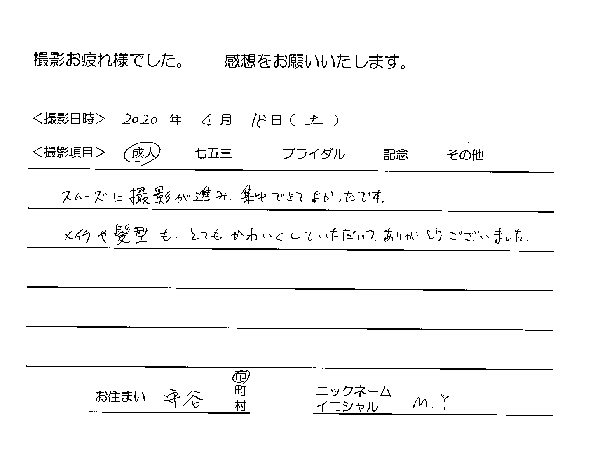 撮影お疲れ様でした。 感想をお願いいたします。
<撮影日時> 2020 年 4 月 18 日 ( 土 )
<撮影項目> 成人 七五三 ブライダル 記念 その他
スムーズに撮影が進み、集中できてよかったです。
メイクや髪型も、とてもかわいくしていただいて、ありがとうございました。
お住まい 守谷 市 町 村
ニックネーム イニシャル M.Y